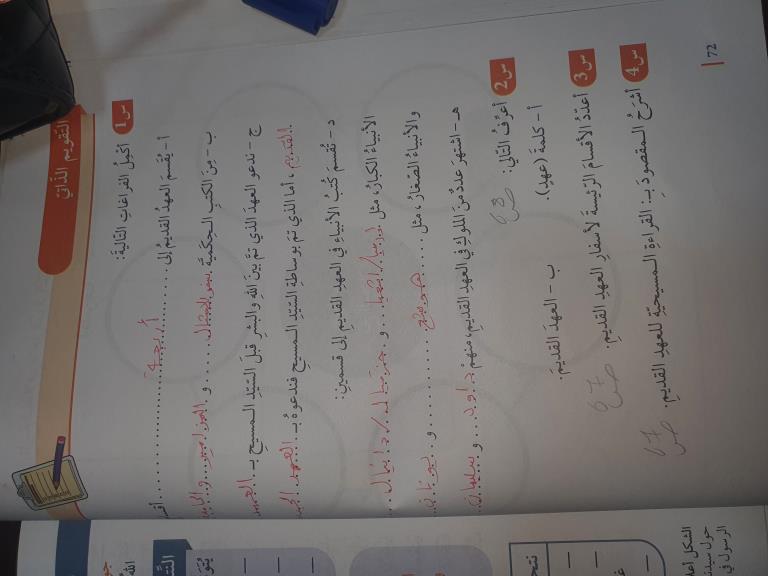 التقويم الذاتيّ
س1 أكمل الفراغات التالية:
أ - يُقسم العهد القديم إلى ........ أربعة ........
ب - مِنَ الكتبِ الحِكميَّةِ سفر الأمثال ..... و المزامير ..
ج - ندعو العهدَ الّذي تمَّ بينَ اللهِ والبشرِ قبلَ السّيّدِ المسيحِ بـ .. العهد
القديم ، أما الّذي تمَّ بوساطةِ السّيّدِ المسيحِ فندعوهُ بـ .. العهد
د - تُقسَم كُتبُ الأنبياءِ في العهدِ القديمِ إلى قسمينِ:
الأنبياءُ الكبارُ، مثل إرميا / إشعيا .. و حزقيال / دانيال ..
والأنبياءُ الصّغارُ، مثل ...... هوشع ...... و .. يونان ..
هـ - اشتهرَ عددٌ منَ الملوكِ في العهدِ القديمِ، منهمْ: داود .. و .. سليمان ..
س2 أعرّفُ التّالي: ص63
أ - كلمةَ (عهدٍ). ب - العهدَ القديمَ.
س3 أعدّدُ الأقسامَ الرّئيسةَ لأسفارِ العهدِ القديمِ. ص 67
س4 أشرحُ المقصودَ بـ: القراءةِ المسيحيّةِ للعهدِ القديمِ. ص 67
72
الشكل أعلا
حول سيدنـ
الرسول في